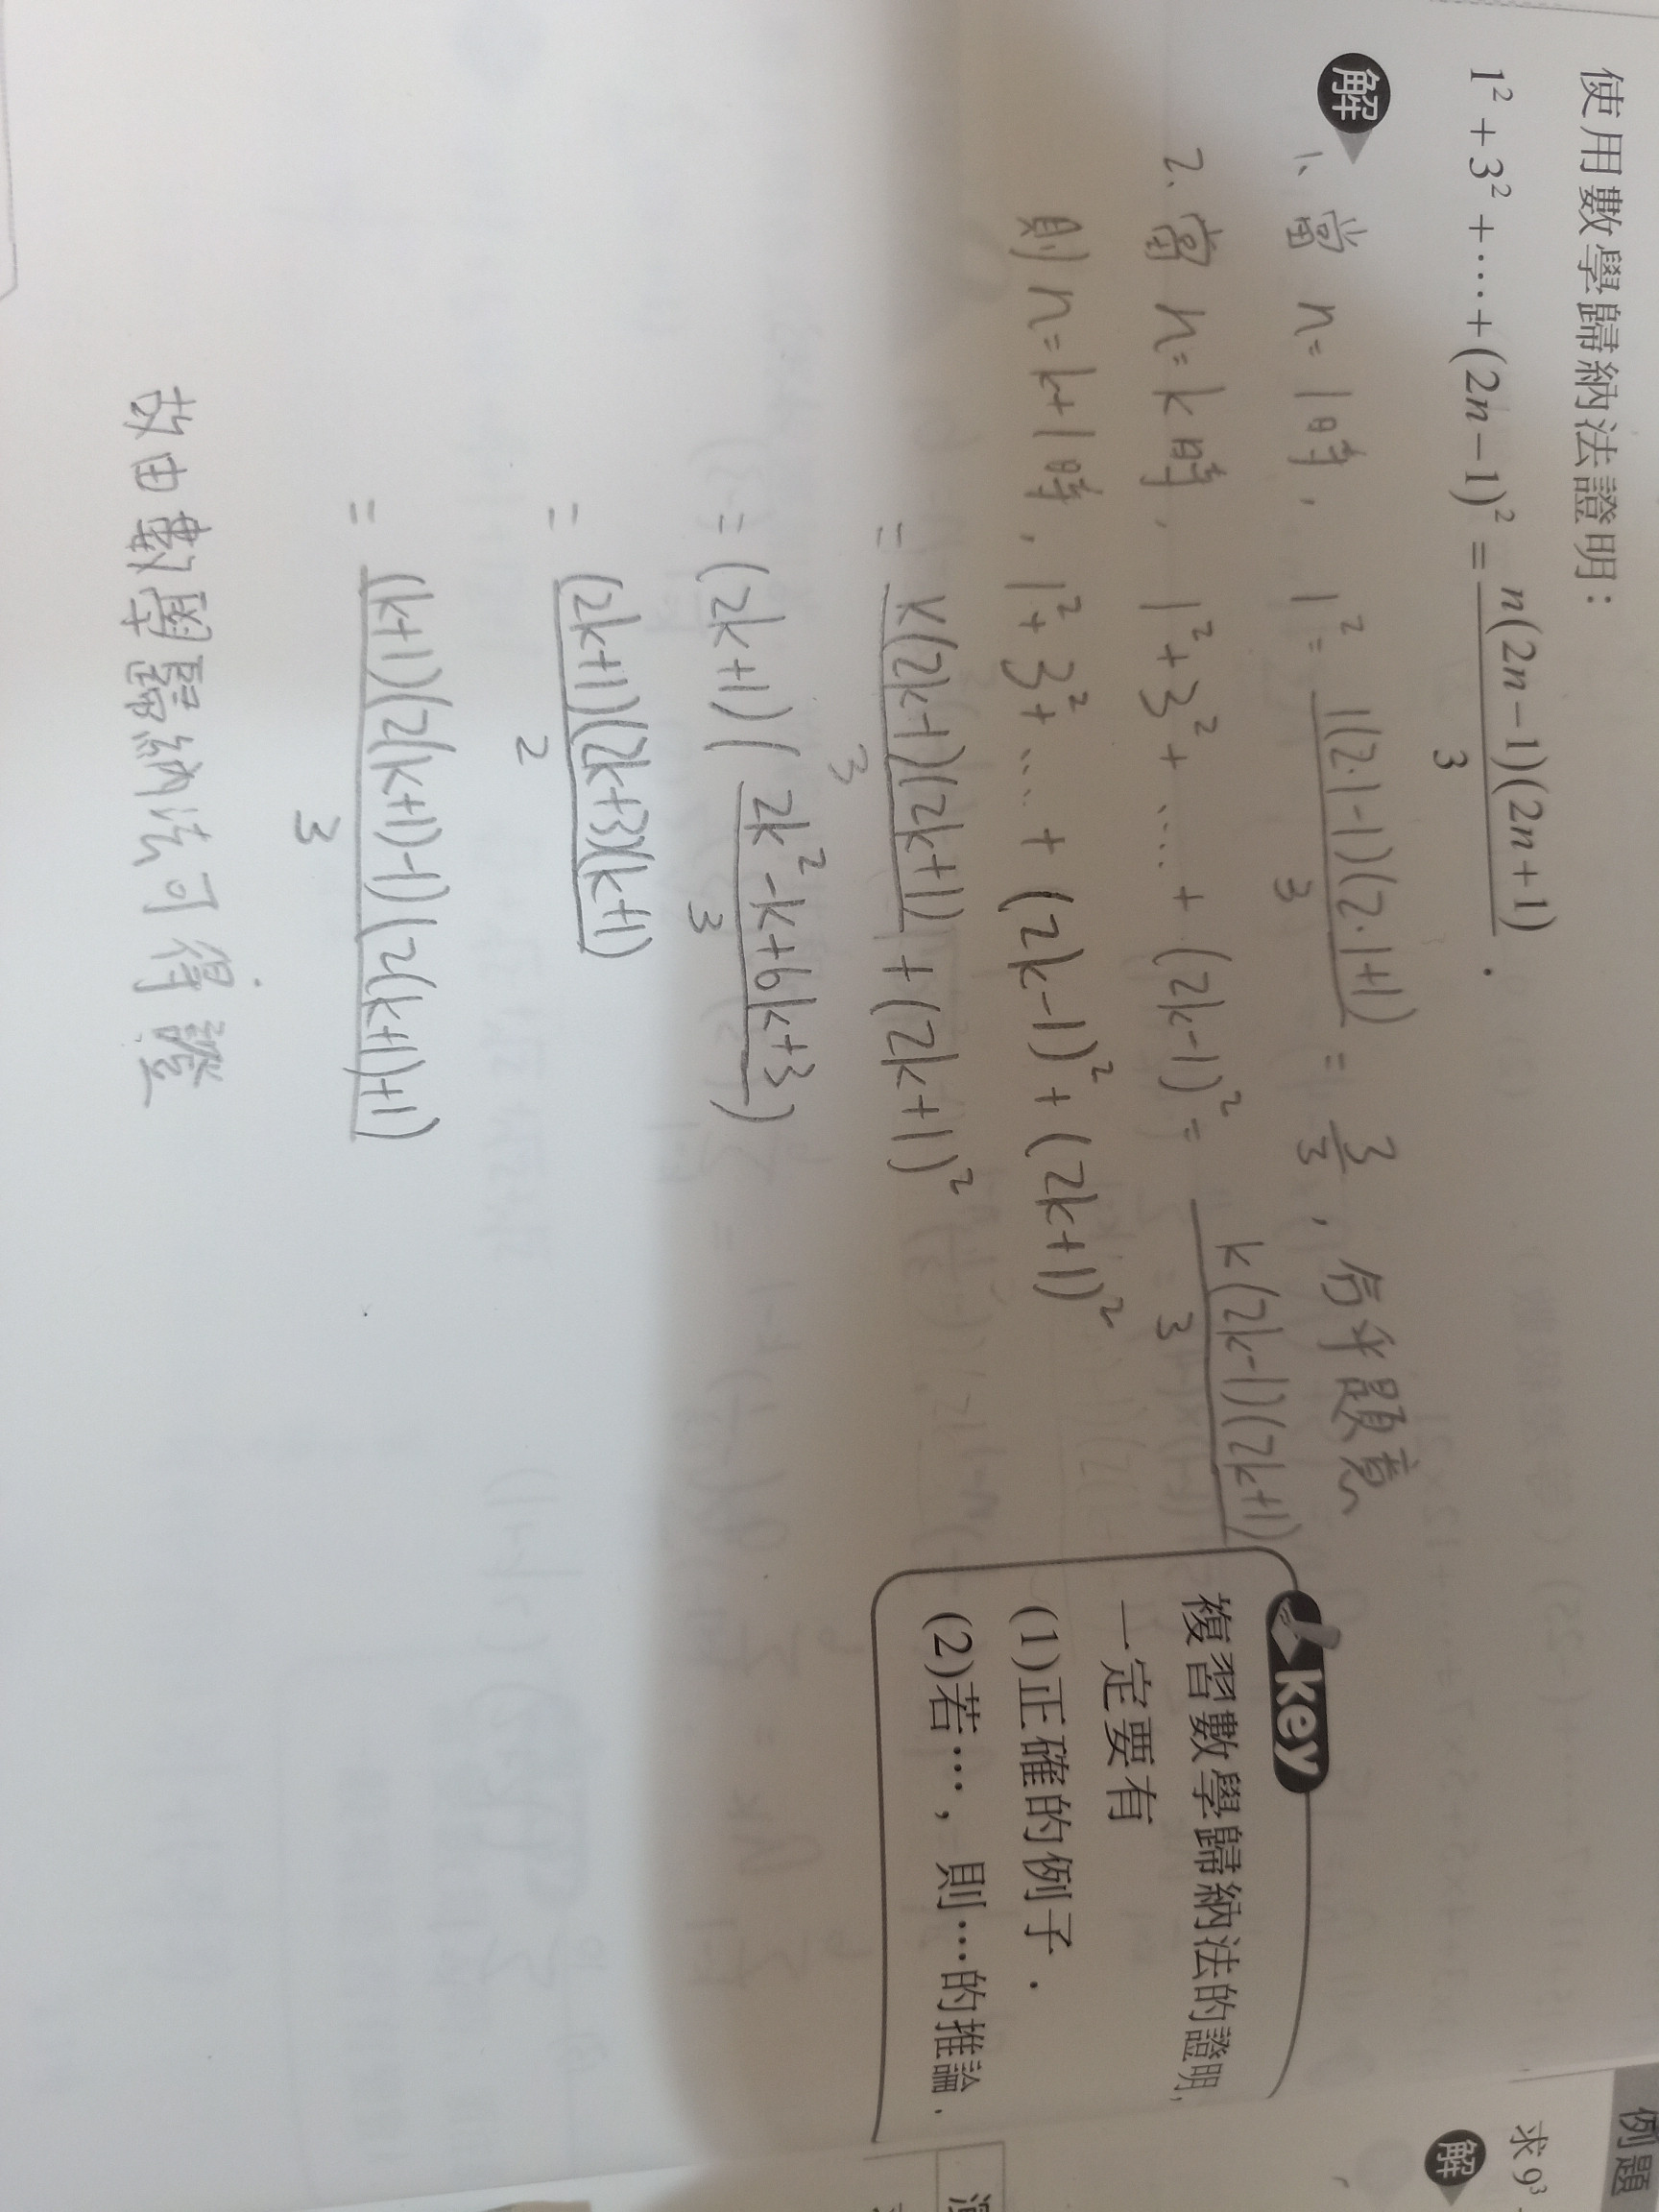 使用數學歸納法證明：
1² + 3² + ⋯ + (2n−1)² = n(2n−1)(2n+1)/3 .
解
1、當 n=1時, 1² = 1(2·1-1)(2·1+1)/3 = 3/3, 合乎題意
2、當 n=k時, 1²+3²+……+(2k-1)² = k(2k-1)(2k+1)/3
則 n=k+1時, 1²+3²+…+(2k-1)²+(2k+1)²
= k(2k-1)(2k+1)/3 + (2k+1)²
= (2k+1)(2k²-k+6k+3/3)
= (2k+1)(2k+3)(k+1)/2
= (k+1)(2(k+1)-1)(2(k+1)+1)/3
故由數學歸納法可得證
key
複習數學歸納法的證明,
一定要有
(1)正確的例子．
(2)若⋯，則⋯的推論．
例題
求 9³
解